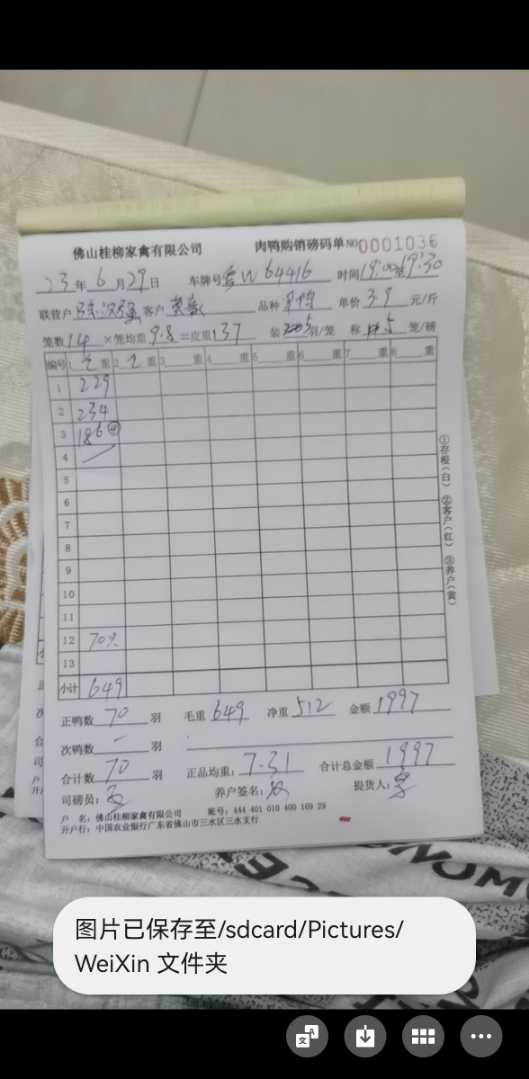 佛山桂柳家禽有限公司 肉鸭购销磅码单 NO 0001036
23年6月29日 车牌号粤W64416 时间19:00至19:30
联营户 客户 品种 单价3.9元/斤
笼数14×笼均重9.8=皮重137 装5羽/笼 称5笼/磅
编号 1 毛重 2 重 3 重 4 重 5 重 6 重 7 重 8 重
1 229
2 234
3 186 ④
4
5
6
7
8
9
10
11
12 70只
13
小计 649
①存根(白) ②客户(红) ③养户(黄)
正鸭数70羽 毛重649 净重512 金额1997
次鸭数 羽
合计数70羽 正品均重:7.31 合计总金额1997
司磅员: 养户签名: 提货人:
户 名:佛山桂柳家禽有限公司 账号:444 401 010 400 169 29
开户行:中国农业银行广东省佛山市三水区三水支行
NOM
图片已保存至/sdcard/Pictures/
WeiXin 文件夹